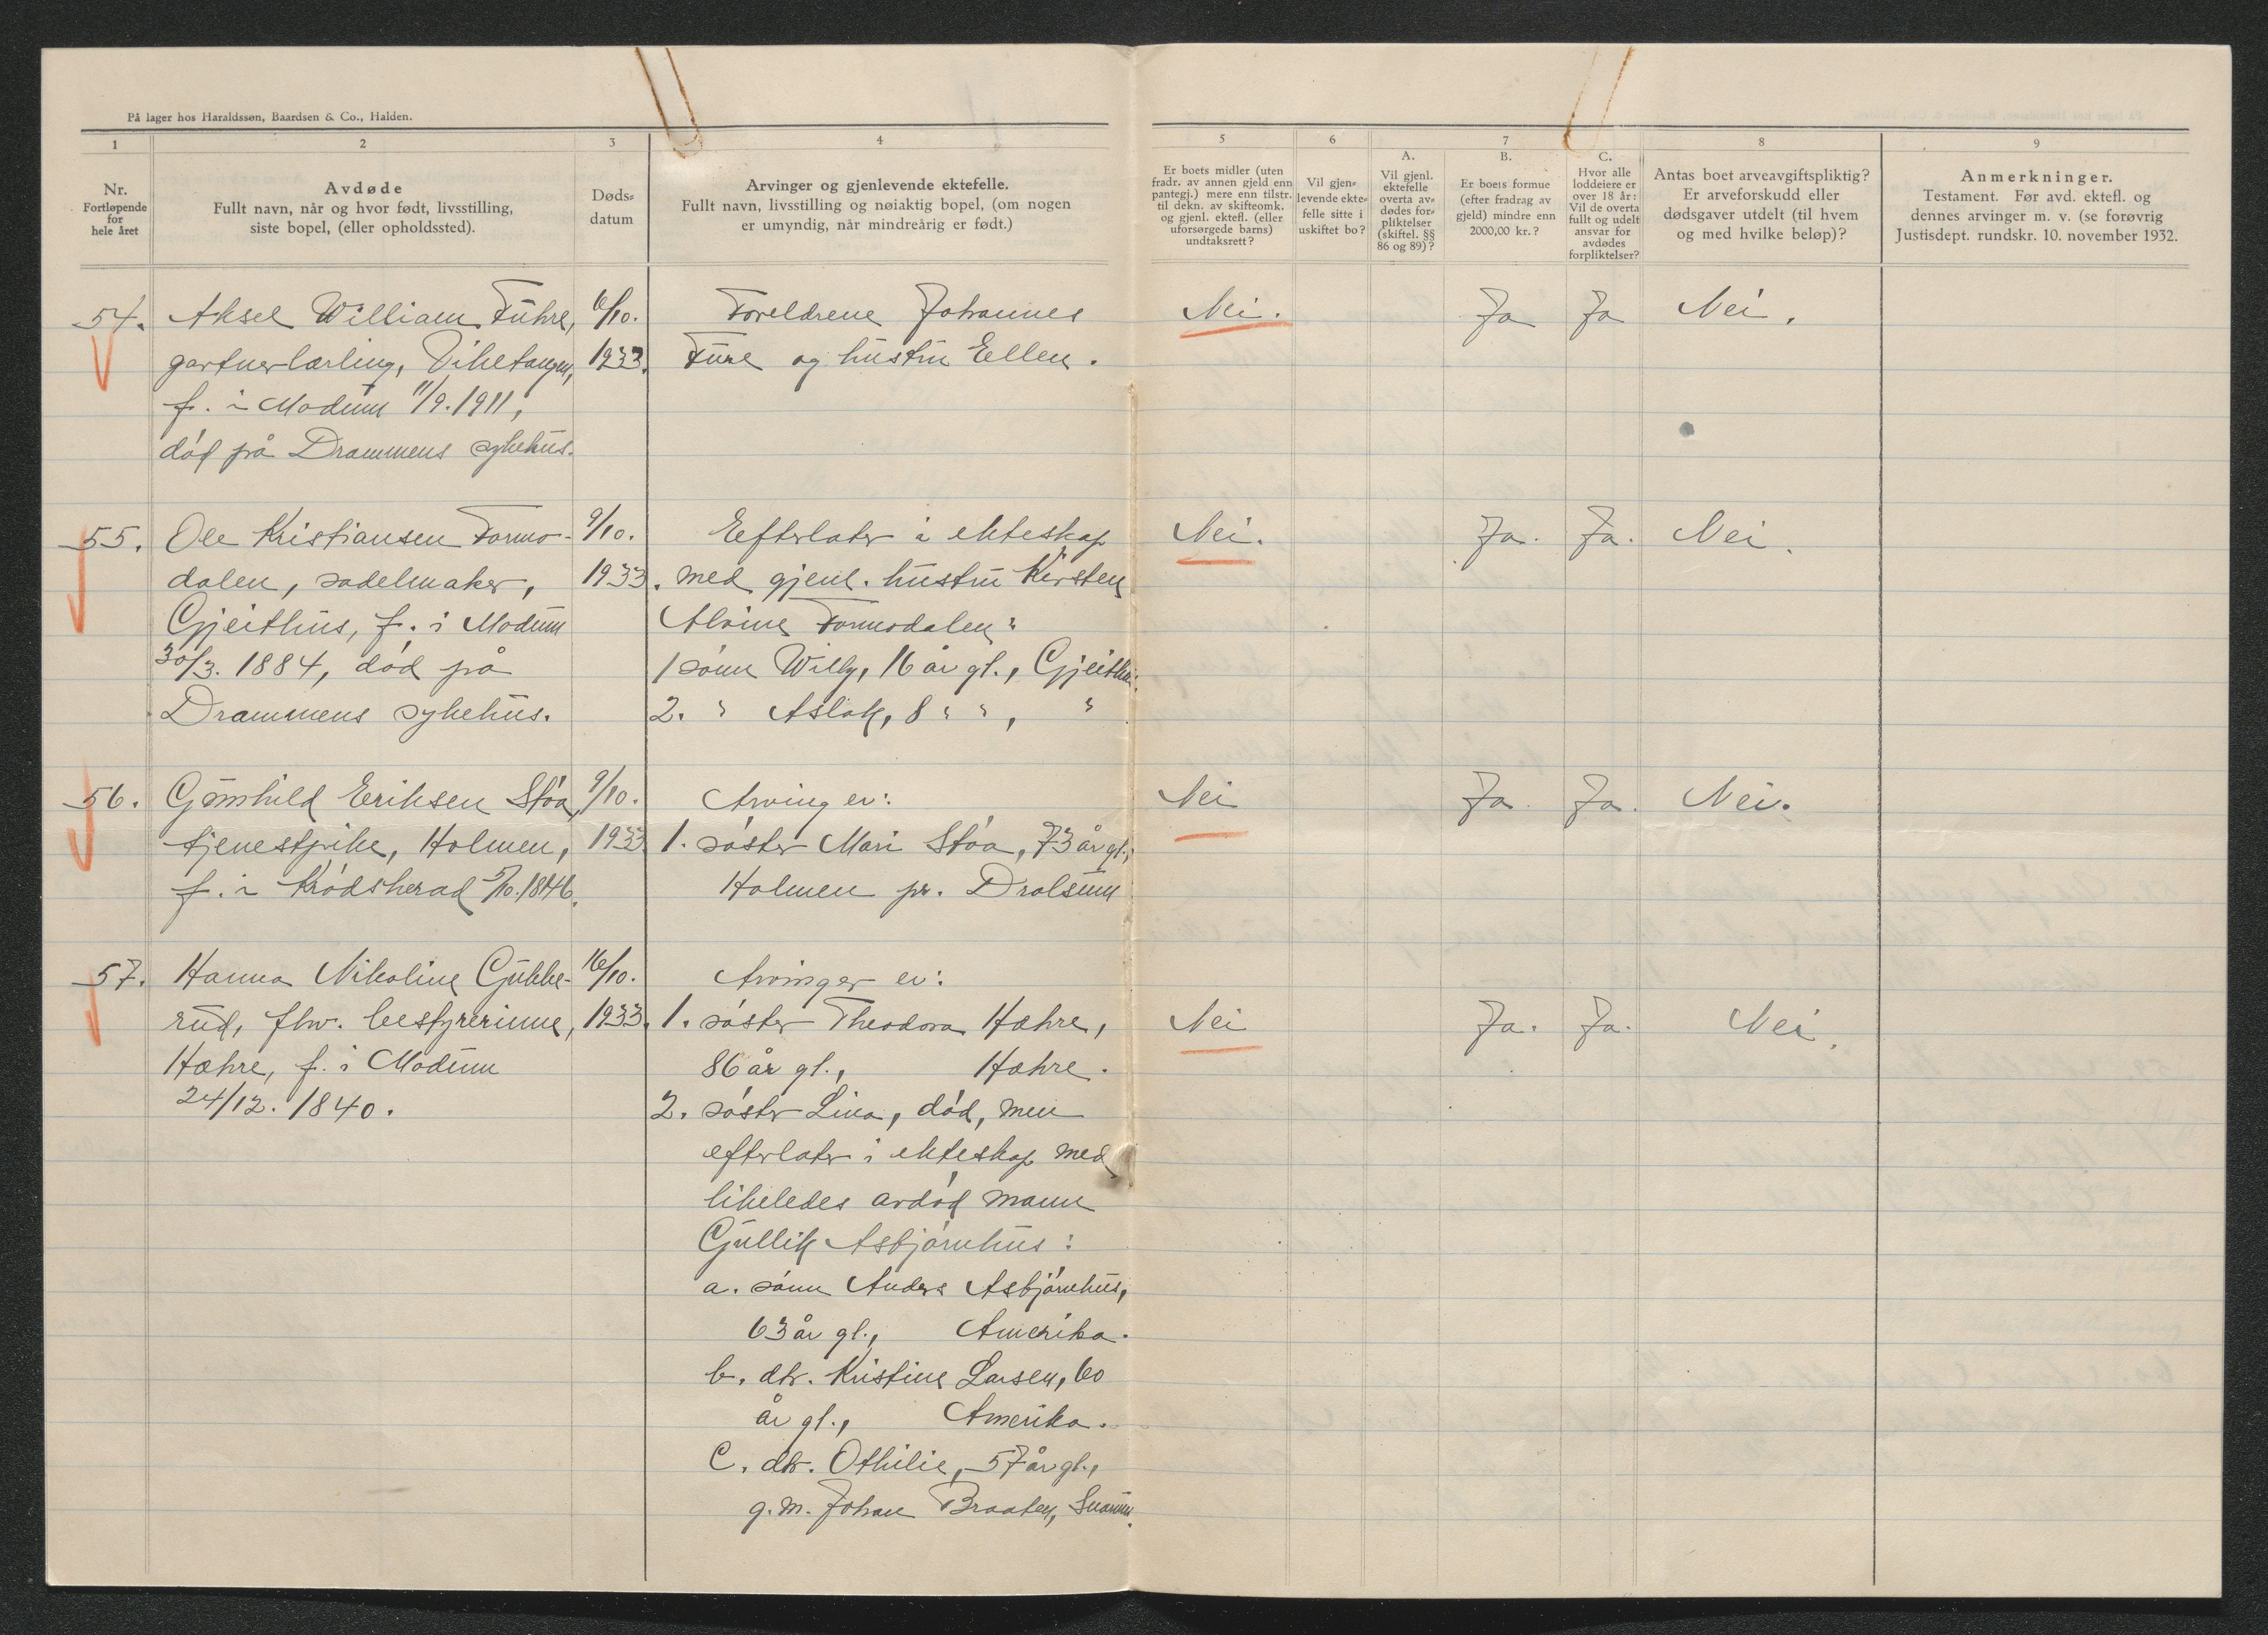 På lager hos Haraldssøn, Baardsen & Co., Halden.
1 2 3 4 5 6 7 8 9
Nr.
Fortløpende
for
hele året
Avdøde
Fullt navn, når og hvor født, livsstilling,
siste bopel, (eller opholdssted).
Døds-
datum
Arvinger og gjenlevende ektefelle.
Fullt navn, livsstilling og nøiaktig bopel, (om nogen
er umyndig, når mindreårig er født.)
Er boets midler (uten
fradr. av annen gjeld enn
pantegj.) mere enn tilstr.
til dekn. av skifteomk.
og gjenl. ektefl. (eller
uforsørgede barns)
undtaksrett?
Vil gjen-
levende ekte-
felle sitte i
uskiftet bo?
A.
Vil gjenl.
ektefelle
overta av-
dødes for-
pliktelser
(skiftel. §§
86 og 89)?
B.
Er boets formue
(efter fradrag av
gjeld) mindre enn
2000,00 kr.?
C.
Hvor alle
loddeiere er
over 18 år:
Vil de overta
fullt og udelt
ansvar for
avdødes
forpliktelser?
Antas boet arveavgiftspliktig?
Er arveforskudd eller
dødsgaver utdelt (til hvem
og med hvilke beløp)?
Anmerkninger.
Testament. Før avd. ektefl. og
dennes arvinger m. v. (se forøvrig
Justisdept. rundskr. 10. november 1932.
54. Aksel William Fuhre, 6/10. Foreldrene Johannes Nei. Ja Ja Nei.
gartnerlærling, Viketangen, 1933. Fure og hustru Ellen.
f. i Modum 11/9. 1911,
død på Drammens sykehus.
55. Ole Kristiansen Formo- 9/10. Eefterlater i ekteskap Nei. Ja. Ja. Nei.
dalen, sadelmaker, 1933. med gjenl. hustru Kirsten
Gjeithus, f. i Modum Alvine Formodalen:
30/3. 1884, død på 1 sønn Willy, 16 år gl., Gjeithus.
Drammens sykehus. 2. " Aslak, 8 " ", "
56. Gunhild Eriksen Støa, 9/10. Arving er: Nei Ja. Ja. Nei.
tjenestpike, Holmen, 1933 1. søster Mari Støa, 73 år gl.,
f. i Krødsherad 5/10. 1846. Holmen pr. Drolsum
57. Hanna Nikoline Gukke- 16/10. Arvinger er:
rud, fhv. bestyrerinne, 1933. 1. søster Theodora Hæhre, Nei Ja. Ja. Nei.
Hæhre, f. i Modum 86 år gl., Hæhre.
24/12. 1840. 2. søster Lina, død, men
efterlater i ekteskap med
likeledes avdød mann
Gullik Asbjørnhus:
a. sønn Anders Asbjørnhus,
63 år gl., Amerika.
b. dtr. Kristine Larsen, 60
år gl., Amerika.
C. dtr. Othilie, 57 år gl.,
g. m. Johan Braaten, Snarum.